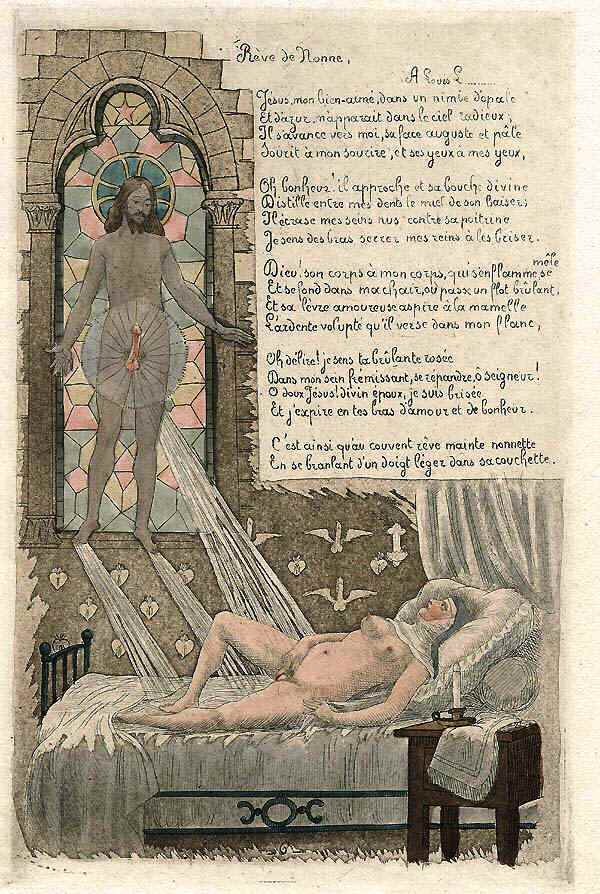 Rêve de Nonne,
A Louis L.........
Jésus, mon bien-aimé, dans un nimbe d'opale
Et d'azur, m'apparait dans le ciel radieux;
Il s'avance vers moi, sa face auguste et pâle
Sourit à mon sourire, et ses yeux à mes yeux,
Oh bonheur! il approche et sa bouche divine
Distille entre mes dents le miel de son baiser;
Il écrase mes seins nus contre sa poitrine
Je sens des bras serrer mes reins à les briser.
Dieu! son corps à mon corps, qui s'enflamme, se mêle
Et se fond dans ma chair, où passe un flot brûlant,
Et sa lèvre amoureuse aspire à la mamelle
L'ardente volupté qu'il verse dans mon flanc,
Oh délire! je sens ta brûlante rosée
Dans mon sein frémissant, se répandre, ô seigneur!
O doux Jésus! divin époux, je suis brisée
Et j'expire en tes bras d'amour et de bonheur.
C'est ainsi qu'au couvent rêve mainte nonnette
En se branlant d'un doigt léger dans sa couchette.
6